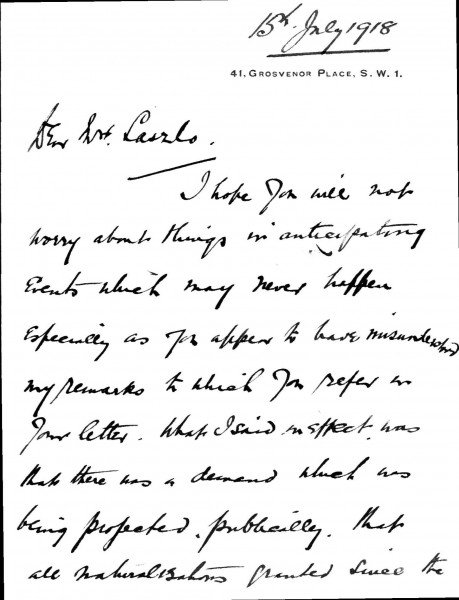 15th July 1918
41, GROSVENOR PLACE, S. W. 1.
Dear Mr. Laszlo.
I hope you will not
worry about things in anticipating
Events which may never happen
Especially as you appear to have misunderstood
my remarks to which you refer in
your letter. What I said in effect was
that there was a demand which was
being projected, publically, that
all naturalisations granted since the